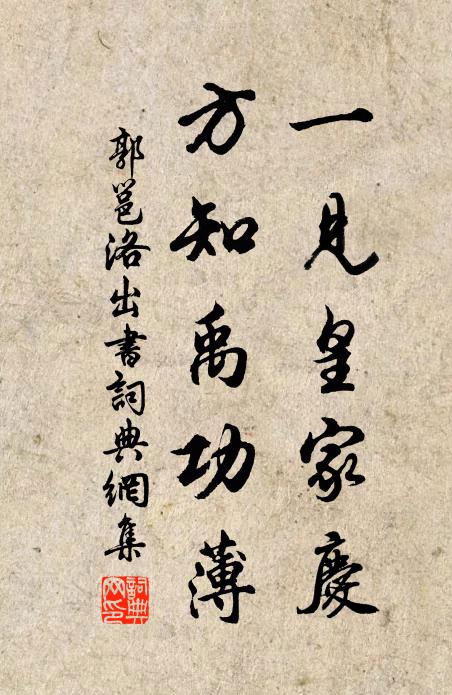 一見皇家慶
方知禹功薄
郭邕洛出書詞典網集
詞典
網印